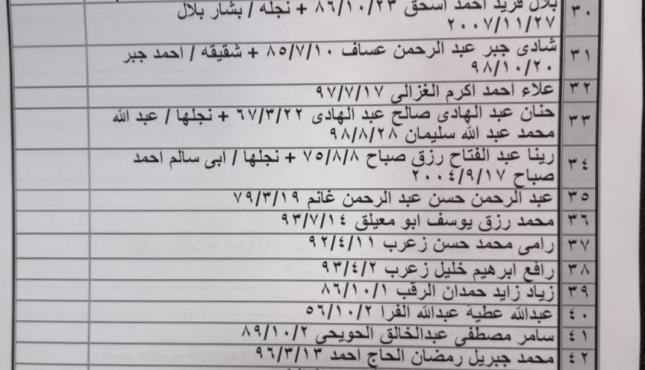 ٣٠ بلال فريد احمد اسحق ٨٦/١٠/٢٣ + نجله / بشار بلال
٢٠٠٧/١١/٢٧
٣١ شادى جبر عبد الرحمن عساف ٨٥/٧/١٠ + شقيقه / احمد جبر
٩٨/١٠/٢٠
٣٢ علاء احمد اكرم الغزالى ٩٧/٧/١٧
٣٣ حنان عبد الهادى صالح عبد الهادى ٦٧/٣/٢٢ + نجلها / عبد الله
محمد عبد الله سليمان ٩٨/٨/٢٨
٣٤ رينا عبد الفتاح رزق صباح ٧٥/٨/٨ + نجلها / ابى سالم احمد
صباح ٢٠٠٤/٩/١٧
٣٥ عبد الرحمن حسن عبد الرحمن غانم ٧٩/٣/١٩
٣٦ محمد رزق يوسف ابو معيلق ٩٣/٧/١٤
٣٧ رامى محمد حسن زعرب ٩٢/٤/١١
٣٨ رافع ابرهيم خليل زعرب ٩٣/٤/٢
٣٩ زياد زايد حمدان الرقب ٨٦/١٠/١
٤٠ عبدالله عطيه عبدالله الفرا ٥٦/١٠/٢
٤١ سامر مصطفى عبدالخالق الحويحي ٨٩/١٠/٢
٤٢ محمد جبريل رمضان الحاج احمد ٩٦/٣/١٣